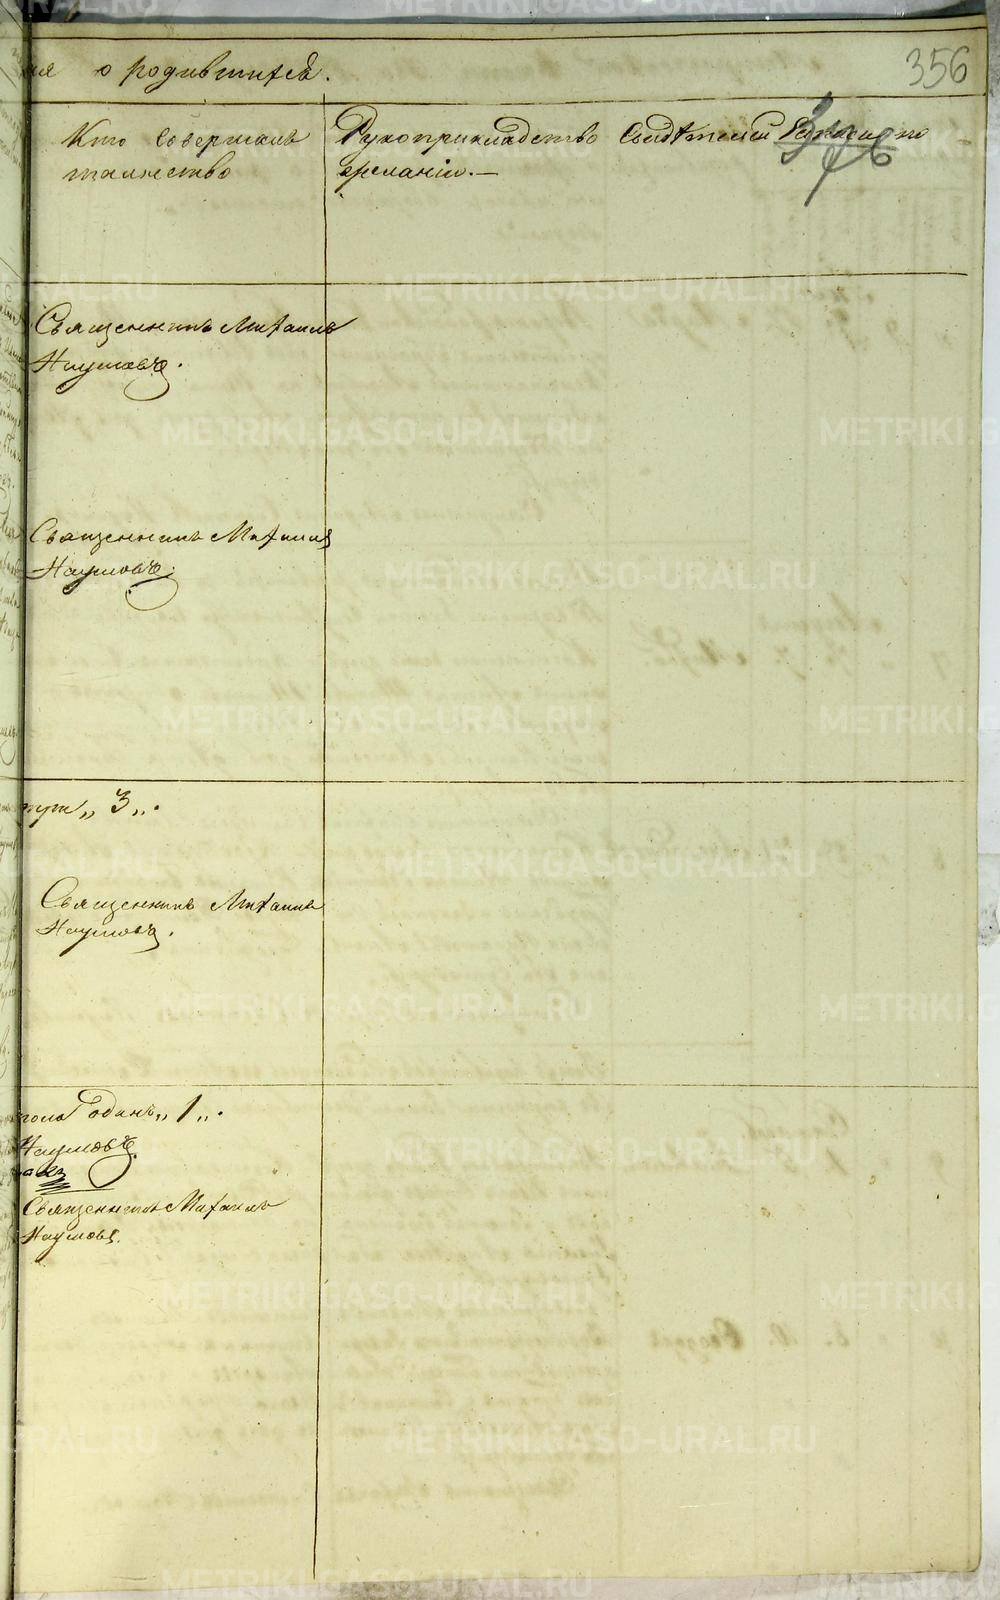 ия о родившихся.
356
Кто совершалъ
таинство
Рукоприкладство свидѣтелей записи по
желанію.—
346
Священникъ Михаилъ
Наумовъ.
Священникъ Михаилъ
Наумовъ.
3.
Священникъ Михаилъ
Наумовъ.
пола одинъ „1„.
Наумовъ
Священникъ Михаилъ
Наумовъ.
METRIKI.GASO-URAL.RU